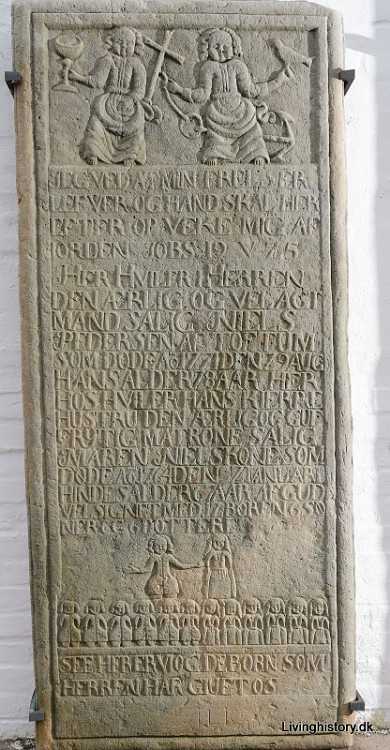 JEG VED AT MIN FRELSER
LEFVER OG HAND SKAL HER
EFTER OP VEKE MIG AF
IORDEN IOBS 19 V 25
HER HVILER I HERREN
DEN ÆRLIG OG VEL AGT
MAND SALIG NIELS
PEDERSEN AF TOFTUM
SOM DØDE Ao DEN 29 AUG
HANS ALDER 78 AAR HER
HOS HVILER HANS KIERRE
HUSTRU DEN ÆRLIG OG GUD
FRYTIG MATRONE SALIG
MAREN NIELSKONE SOM
DØDE Ao DEN IANUARI
HINDES ALDER AAR AF GUD
VELSIGNET MED BØREN SØ
NER OG DØTTERE
SEE HER ER VI OG DE BØRN SOM
HERREN HAR GIVET OS
Livinghistory.dk